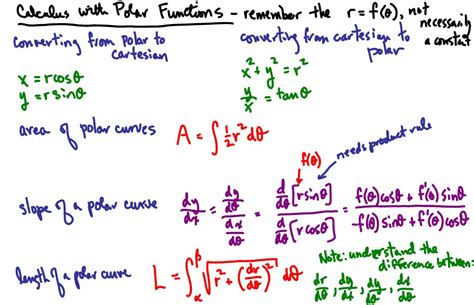 Calculus with Polar Functions - remember the r = f(θ), not necessarily a constant
converting from polar to cartesian
x = rcosθ
y = rsinθ
converting from cartesian to polar
x² + y² = r²
y/x = tanθ
area of polar curves A = ∫ 1/2 r² dθ
f(θ) needs product rule
slope of a polar curve dy/dx = (dy/dθ)/(dx/dθ) = (d/dθ [rsinθ])/(d/dθ [rcosθ]) = (f(θ)cosθ + f'(θ)sinθ)/(-f(θ)sinθ + f'(θ)cosθ)
length of a polar curve L = ∫_α^β √(r² + (dr/dθ)²) dθ
Note: understand the
difference between:
dr/dθ, dy/dx, dy/dθ, dx/dθ